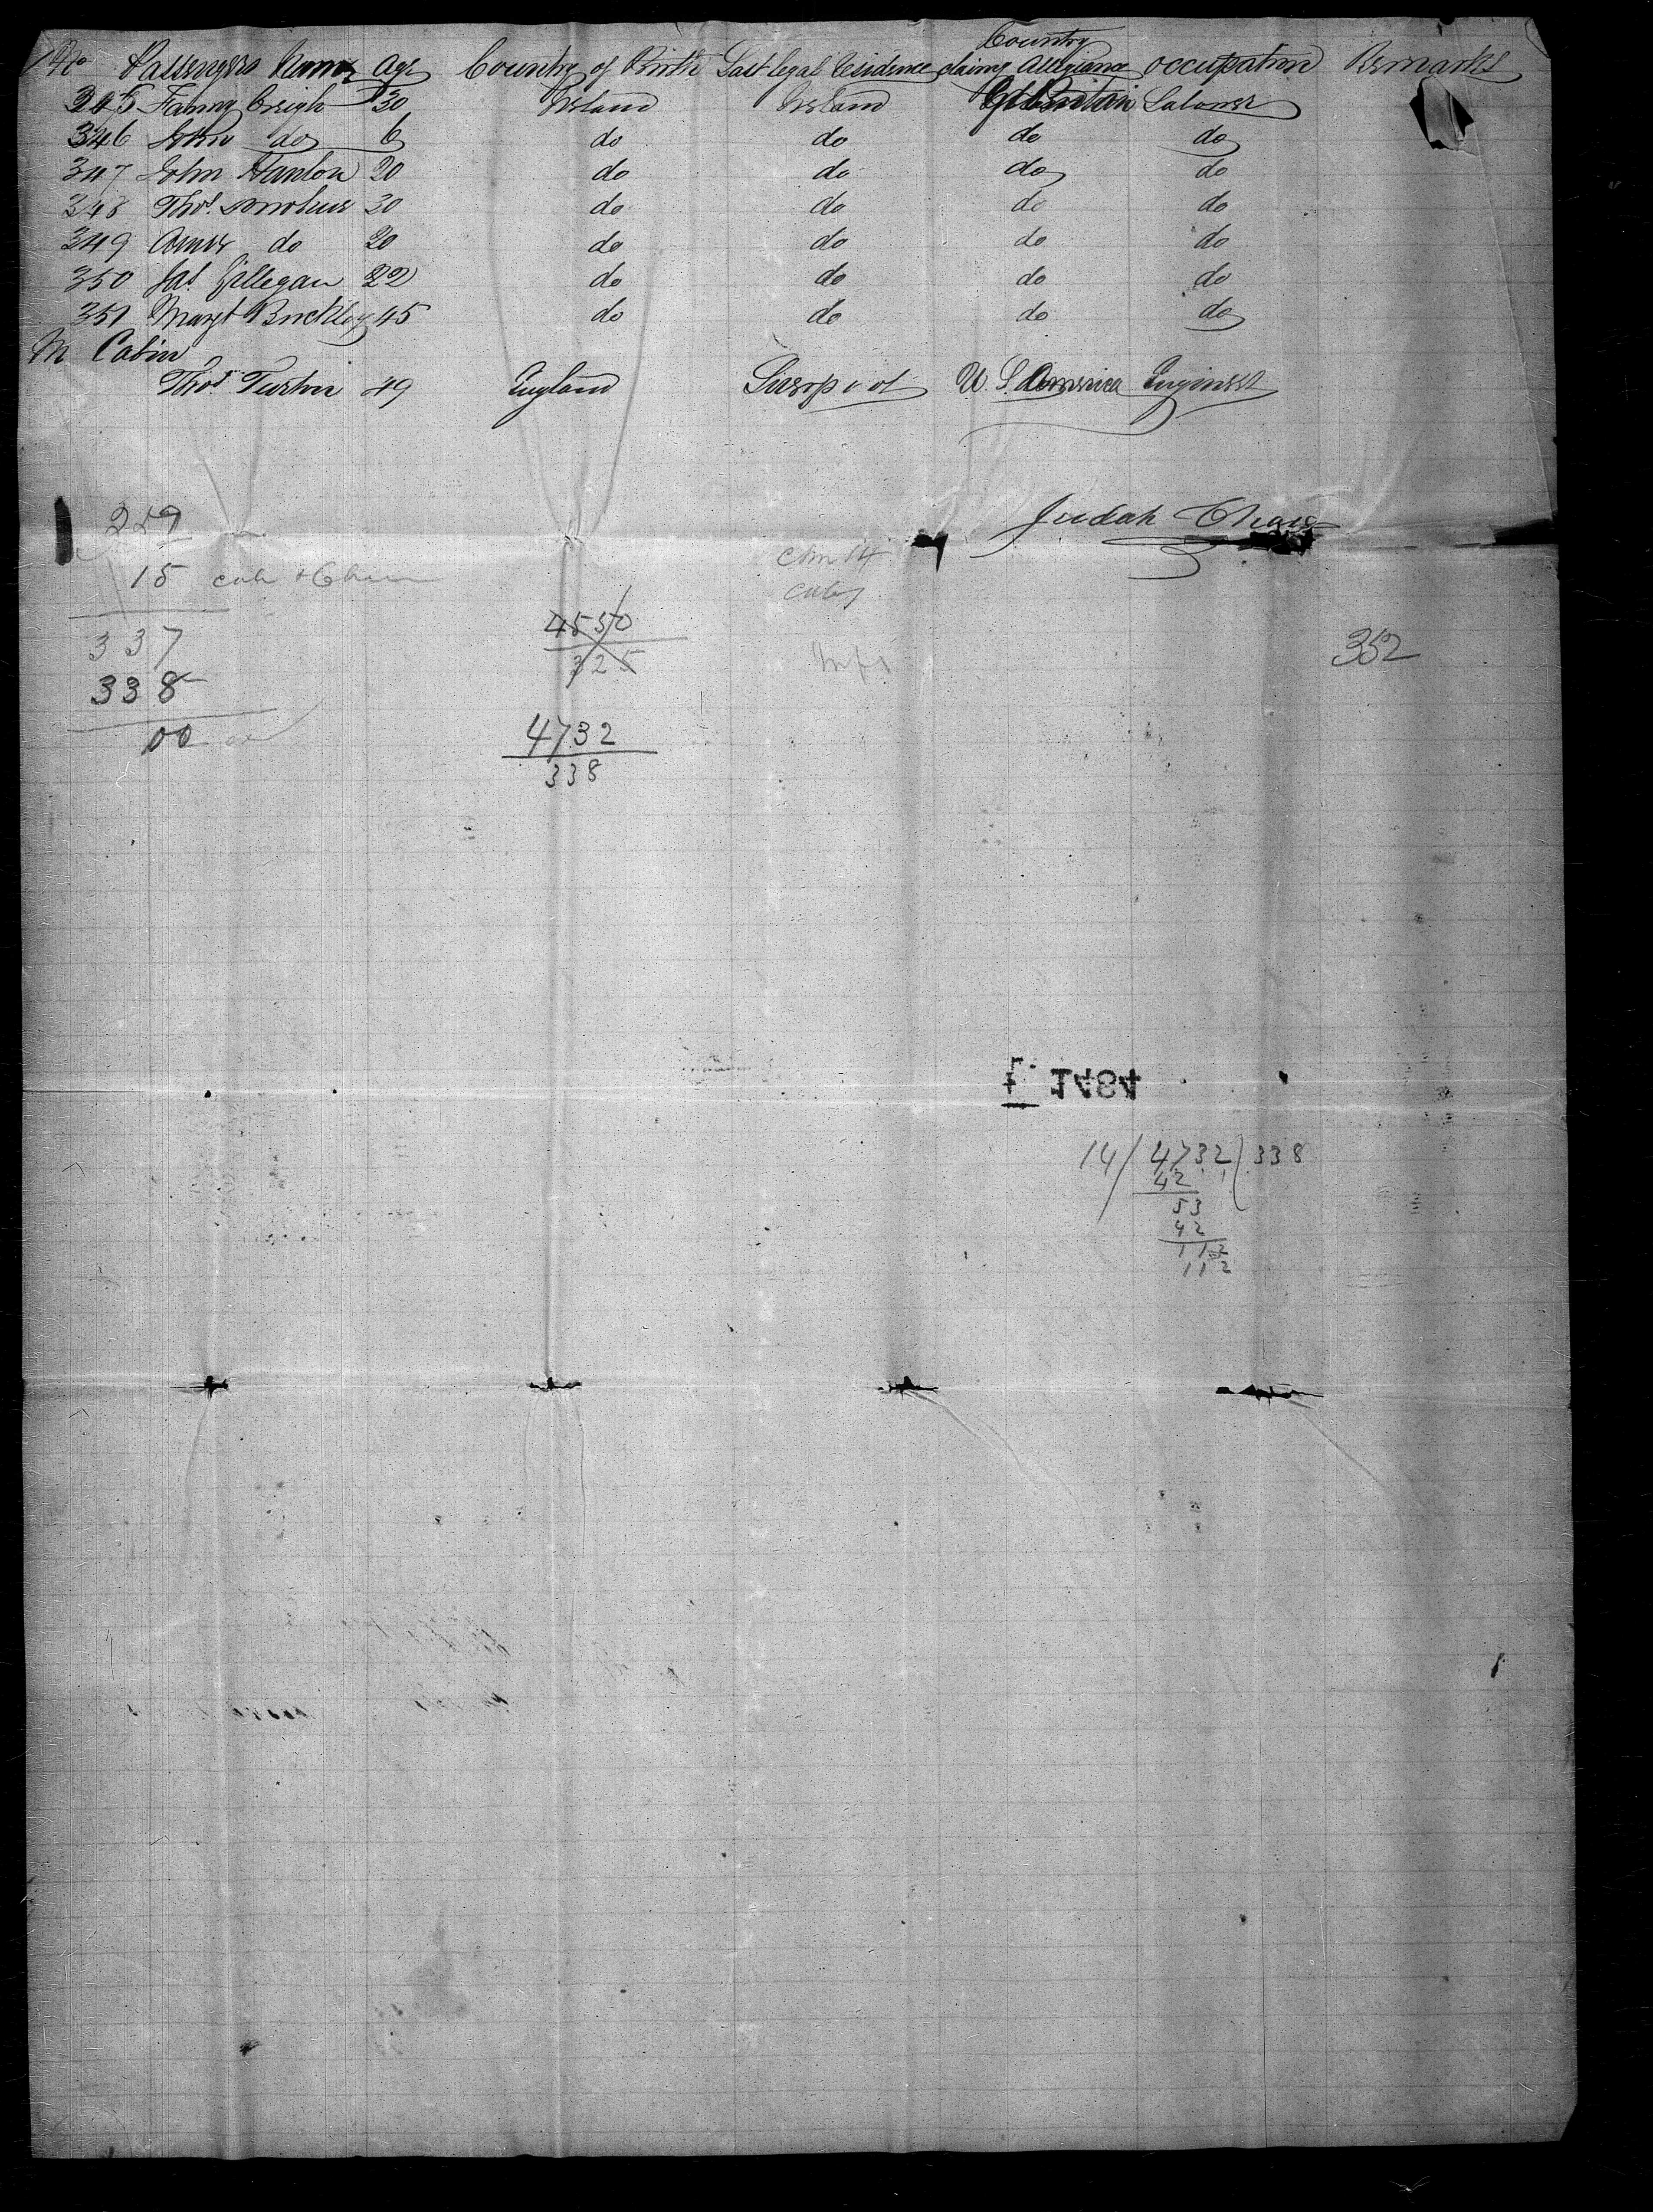 No Passengers Names Age Country of Birth Last legal Residence Country claims Allegiance Occupation Remarks
345 Fanny Creigh 30 Ireland Ireland Gt Britain Laborer
346 John do 6 do do do do
347 John Hanlon 20 do do do do
348 Thos. 30 do do do do
349 do 20 do do do do
350 Jas. Gillegan 22 do do do do
351 Margt Buckley 45 do do do do
Cabin
Thos. Turton 49 England Liverpool U. S. America Engineer
Judah Chase
15
337
338
00
4550
325
4732
338
352
1484
14/4732(338
42
53
42
112
112